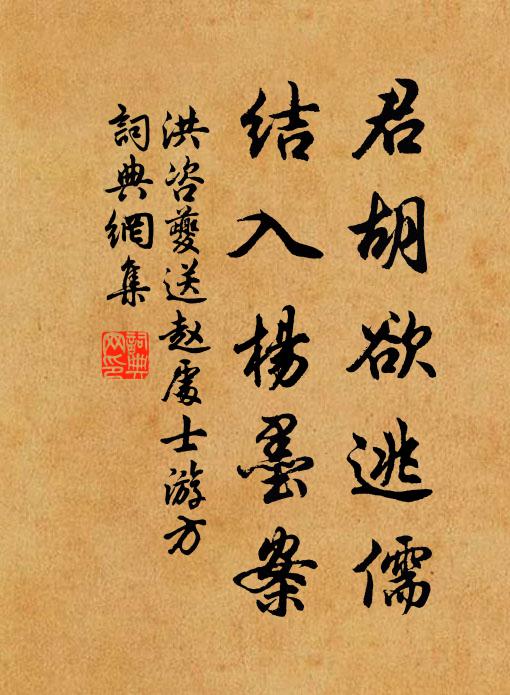 君胡欲逃儒
结入杨墨案
洪咨夔送赵處士游方
詞典網集
詞典網印